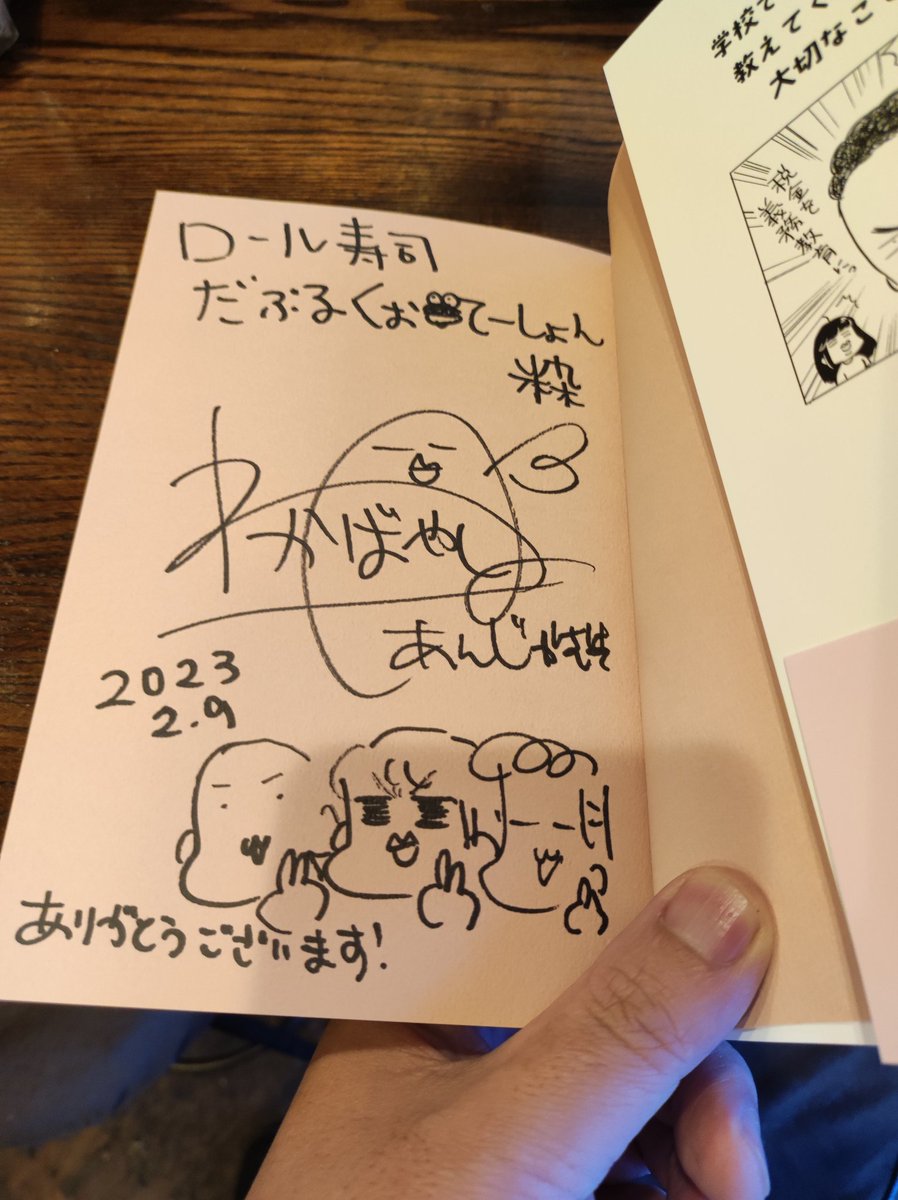 ロール寿司
だぶるくぉてーしょん
粋
わかばやし
あんじかむ
2023
2.9
ありがとうございます!
学校で
教えてく
大切なこと
税金を
義務教育に。